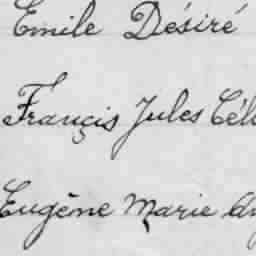 Emile Désiré
Françis Jules
Eugène Marie